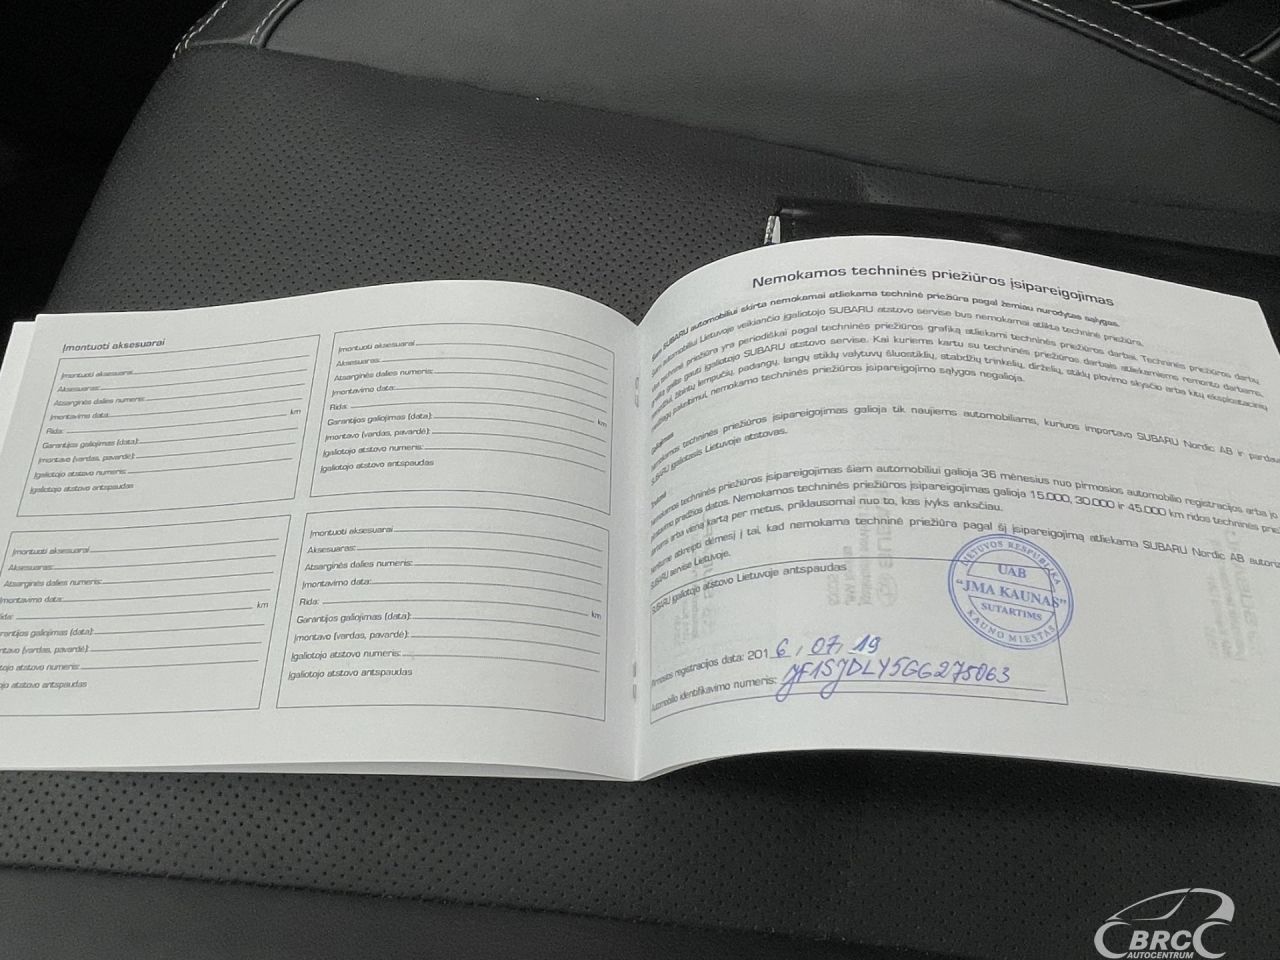 Įmontuoti aksesuarai
Įmontuoti aksesuarai
Aksesuaras:
Atsarginės dalies numeris:
Įmontavimo data:
Rida: km
Garantijos galiojimas (data):
Įmontavo (vardas, pavardė):
Įgaliotojo atstovo numeris:
Įgaliotojo atstovo antspaudas
Įmontuoti aksesuarai
Aksesuaras:
Atsarginės dalies numeris:
Įmontavimo data:
Rida: km
Garantijos galiojimas (data):
Įmontavo (vardas, pavardė):
Įgaliotojo atstovo numeris:
Įgaliotojo atstovo antspaudas
Įmontuoti aksesuarai
Aksesuaras:
Atsarginės dalies numeris:
Įmontavimo data:
km
galiojimas (data):
(vardas, pavardė):
atstovo numeris:
atstovo antspaudas
Įmontuoti aksesuarai
Aksesuaras:
Atsarginės dalies numeris:
Įmontavimo data:
Rida: km
Garantijos galiojimas (data):
Įmontavo (vardas, pavardė):
Įgaliotojo atstovo numeris:
Įgaliotojo atstovo antspaudas
Nemokamos techninės priežiūros įsipareigojimas
SUBARU automobiliui skirta nemokamai atliekama techninė priežiūra pagal žemiau nurodytas sąlygas.
automobiliui Lietuvoje veikiančio įgaliotojo SUBARU atstovo servise bus nemokamai atlikta techninė priežiūra.
techninė priežiūra yra periodiškai pagal techninės priežiūros grafiką atliekami techninės priežiūros darbai. Techninės priežiūros darbų
galite gauti įgaliotojo SUBARU atstovo servise. Kai kuriems kartu su techninės priežiūros darbais atliekamiems remonto darbams,
žibintų lempučių, padangų, langų stiklų valytuvų šluostiklių, stabdžių trinkelių, dirželių, stiklų plovimo skysčio arba kitų eksploatacinių
pakeitimui, nemokamo techninės priežiūros įsipareigojimo sąlygos negalioja.
techninės priežiūros įsipareigojimas galioja tik naujiems automobiliams, kuriuos importavo SUBARU Nordic AB ir
SUBARU įgaliotasis Lietuvoje atstovas.
techninės priežiūros įsipareigojimas šiam automobiliui galioja 36 mėnesius nuo pirmosios automobilio registracijos arba jo
pradžios datos. Nemokamos techninės priežiūros įsipareigojimas galioja 15.000, 30.000 ir 45.000 km ridos techninės
arba vieną kartą per metus, priklausomai nuo to, kas įvyks anksčiau.
atkreipti dėmesį į tai, kad nemokama techninė priežiūra pagal šį įsipareigojimą atliekama SUBARU Nordic AB
SUBARU servise Lietuvoje.
SUBARU įgaliotojo atstovo Lietuvoje antspaudas
LIETUVOS RESPUBLIKA
UAB
"JMA KAUNAS"
SUTARTIMS
KAUNO MIESTAS
Pirmosios registracijos data: 2016, 07, 19
Automobilio identifikavimo numeris: JF1SJDLY5GG275063
BRC
AUTOCENTRUM